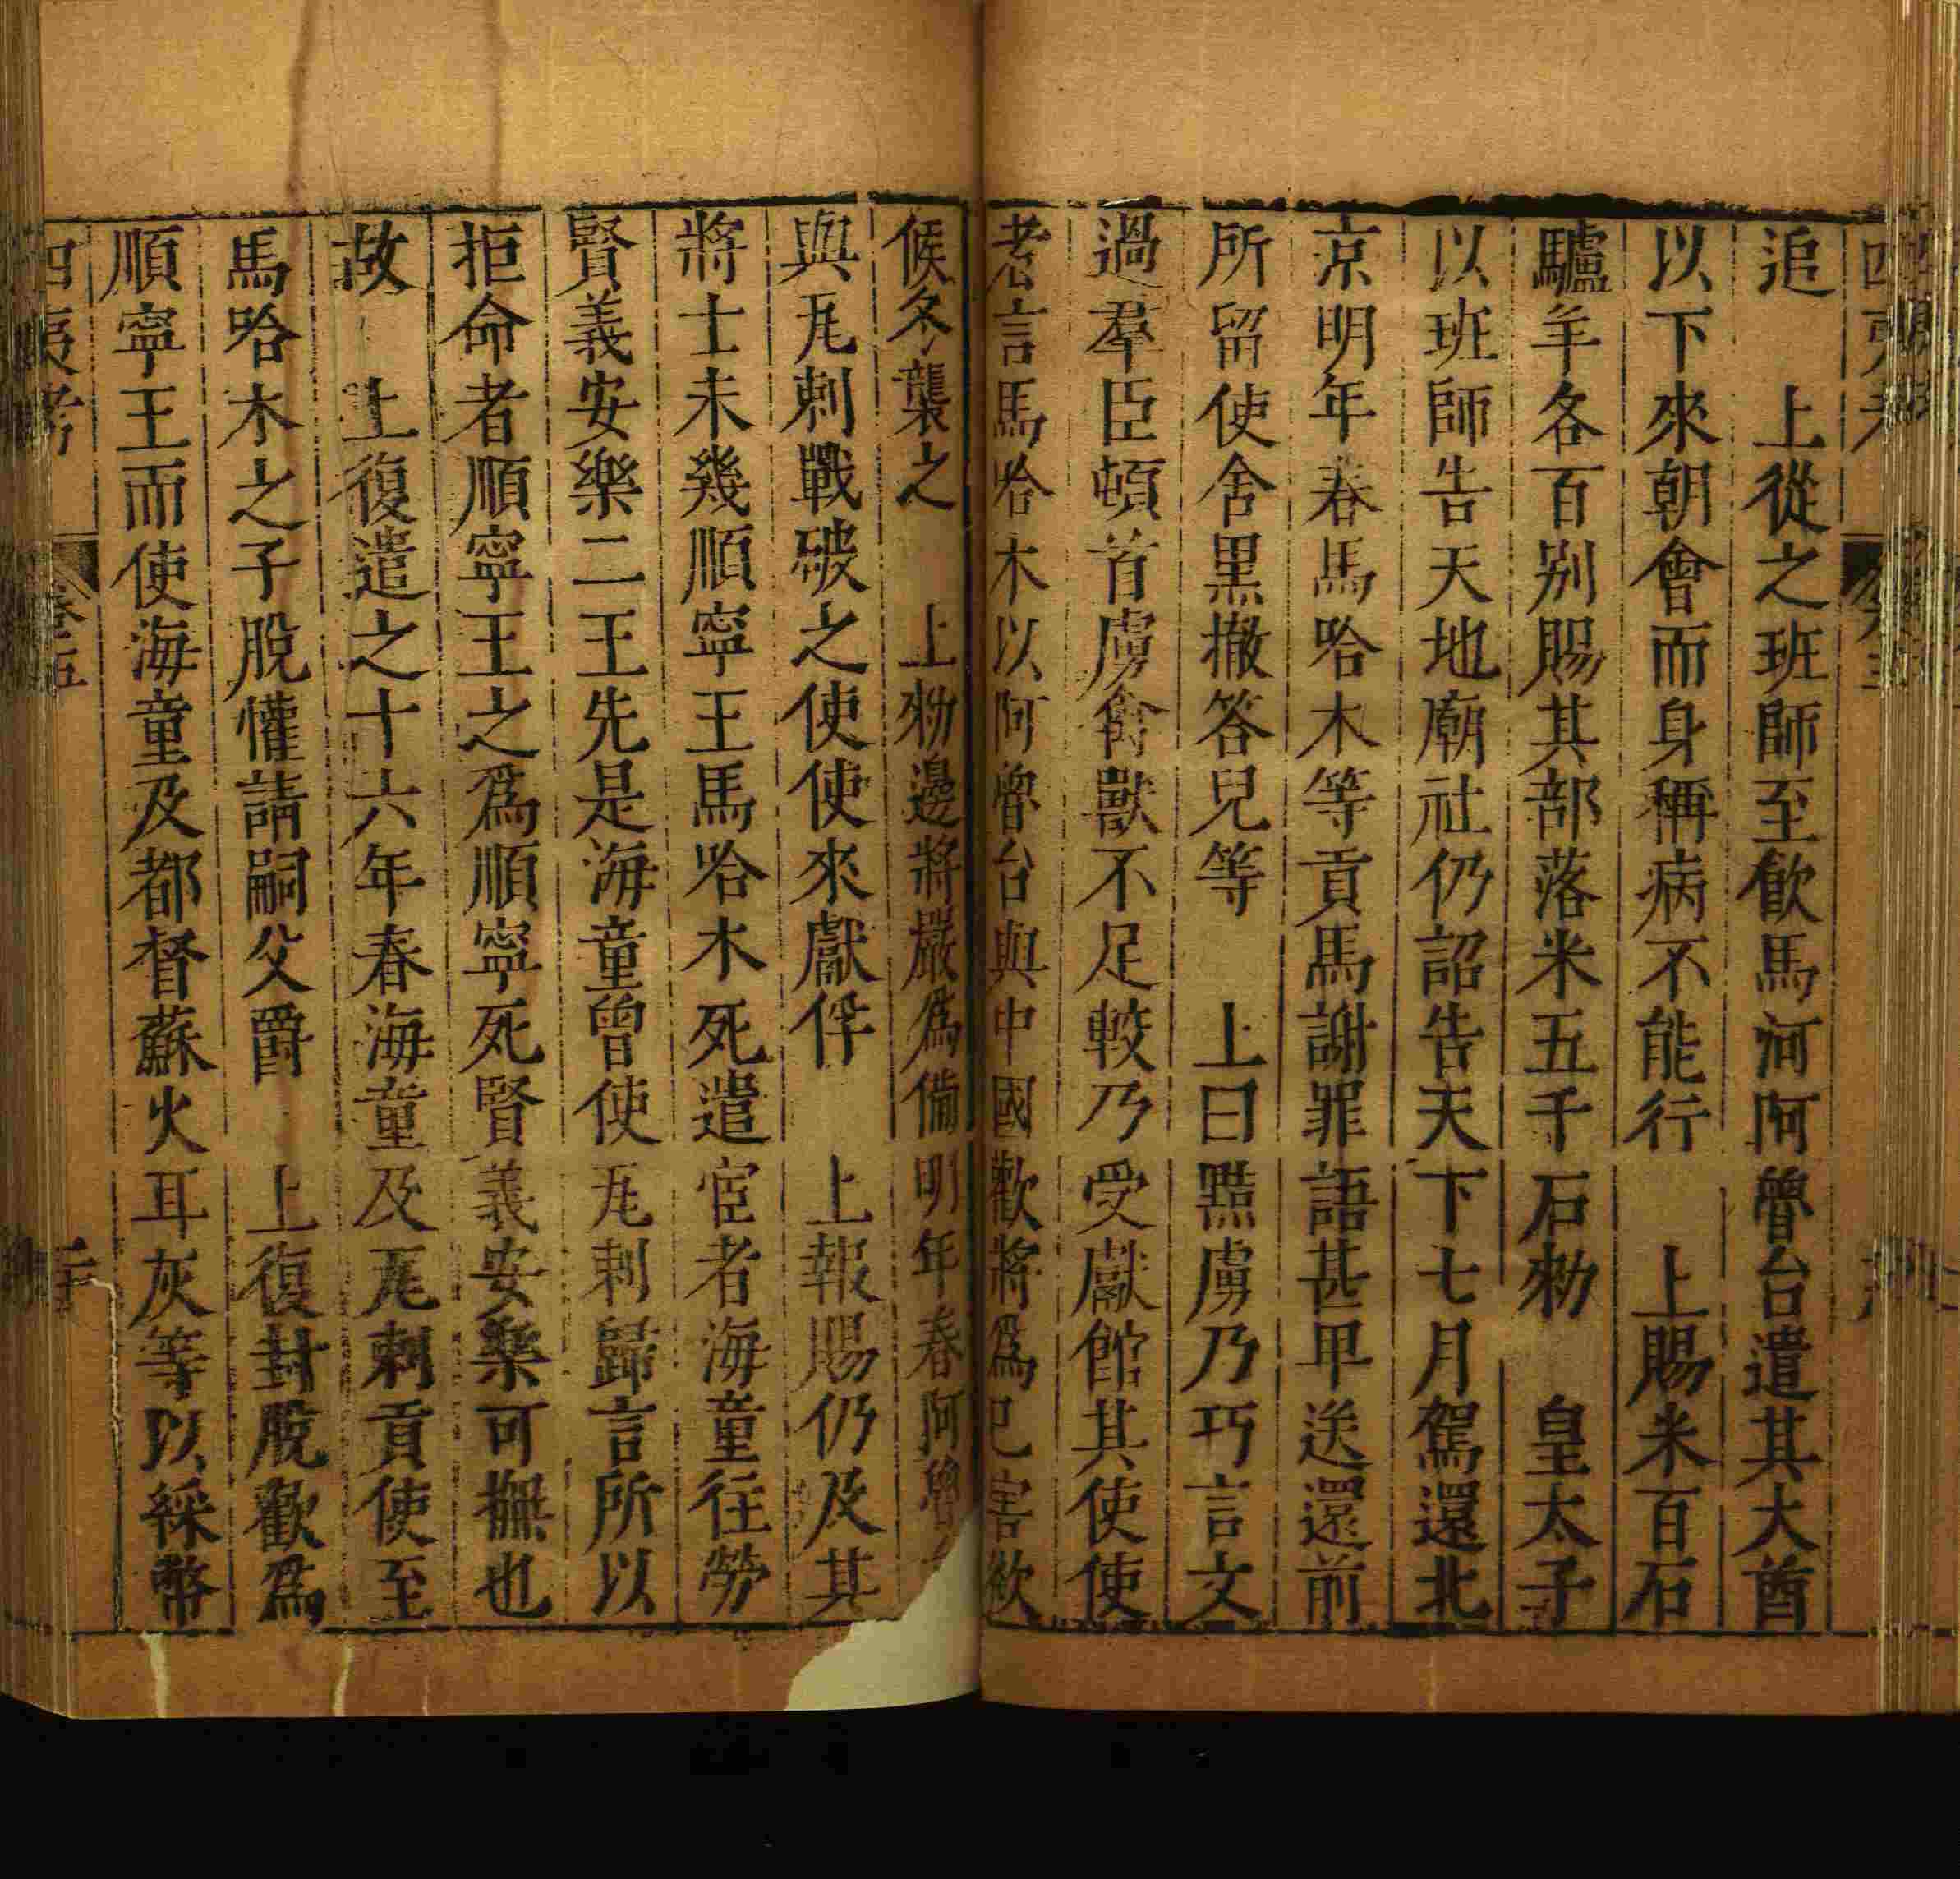 追　上從之班師至飲馬河阿魯台遣其大酋
以下來朝會而身稱病不能行　上賜米百石
驢羊各百别賜其部落米五千石勑　皇太子
以班師告天地廟社仍詔告天下七月駕還北
京明年春馬哈木等貢馬謝罪語甚甲送還前
所留使舍黑撒答兒等　上曰黠虜乃巧言文
過羣臣頓首虜禽獸不足較乃受獻館其使使
者言馬哈木以阿魯台與中國歡將為已害欲
候冬襲之　上勑邊將嚴為備明年春阿魯
與瓦剌戰破之使使來獻俘　上報賜仍及其
將士未幾順寧王馬哈木死遣宦者海童往勞
賢義安樂二王先是海童曾使瓦剌歸言所以
拒命者順寧王之為順寧死賢義安樂可撫也
故　上復遣之十六年春海童及瓦剌貢使至
馬哈木之子脫懽請嗣父爵　上復封脫歡為
順寧王而使海童及都督蘇火耳灰等以綵幣
四夷考　卷五　二十